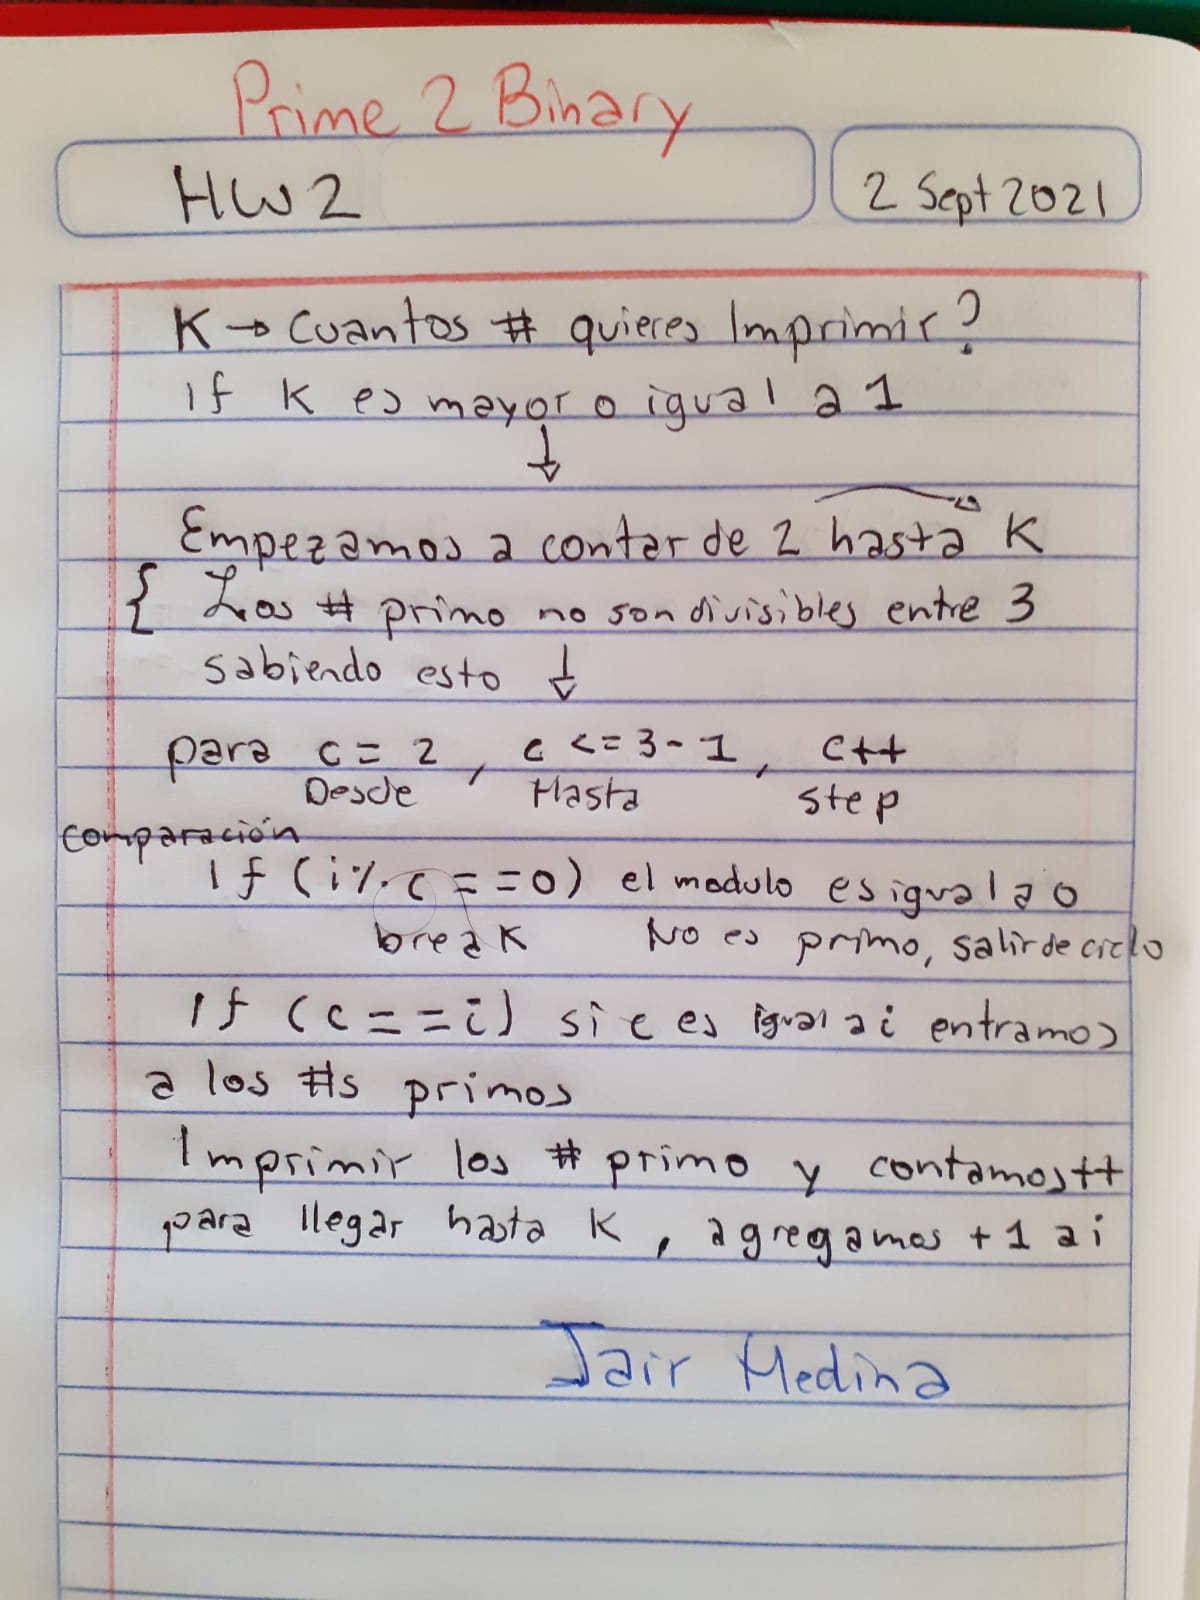 Prime 2 Binary
HW2
2 Sept 2021
K → Cuantos # quieres Imprimir?
If K es mayor o igual a 1
↓
Empezamos a contar de 2 hasta K
{ Los # primo no son divisibles entre 3
sabiendo esto ↓
para c = 2, c <= 3-1, c++
Desde Hasta step
comparación
If (i % c == 0) el modulo es igual a 0
break No es primo, salir de ciclo
If (c == i) si c es igual a i entramos
a los #s primos
Imprimir los # primo y contamos++
para llegar hasta K, agregamos +1 a i
Jair Medina